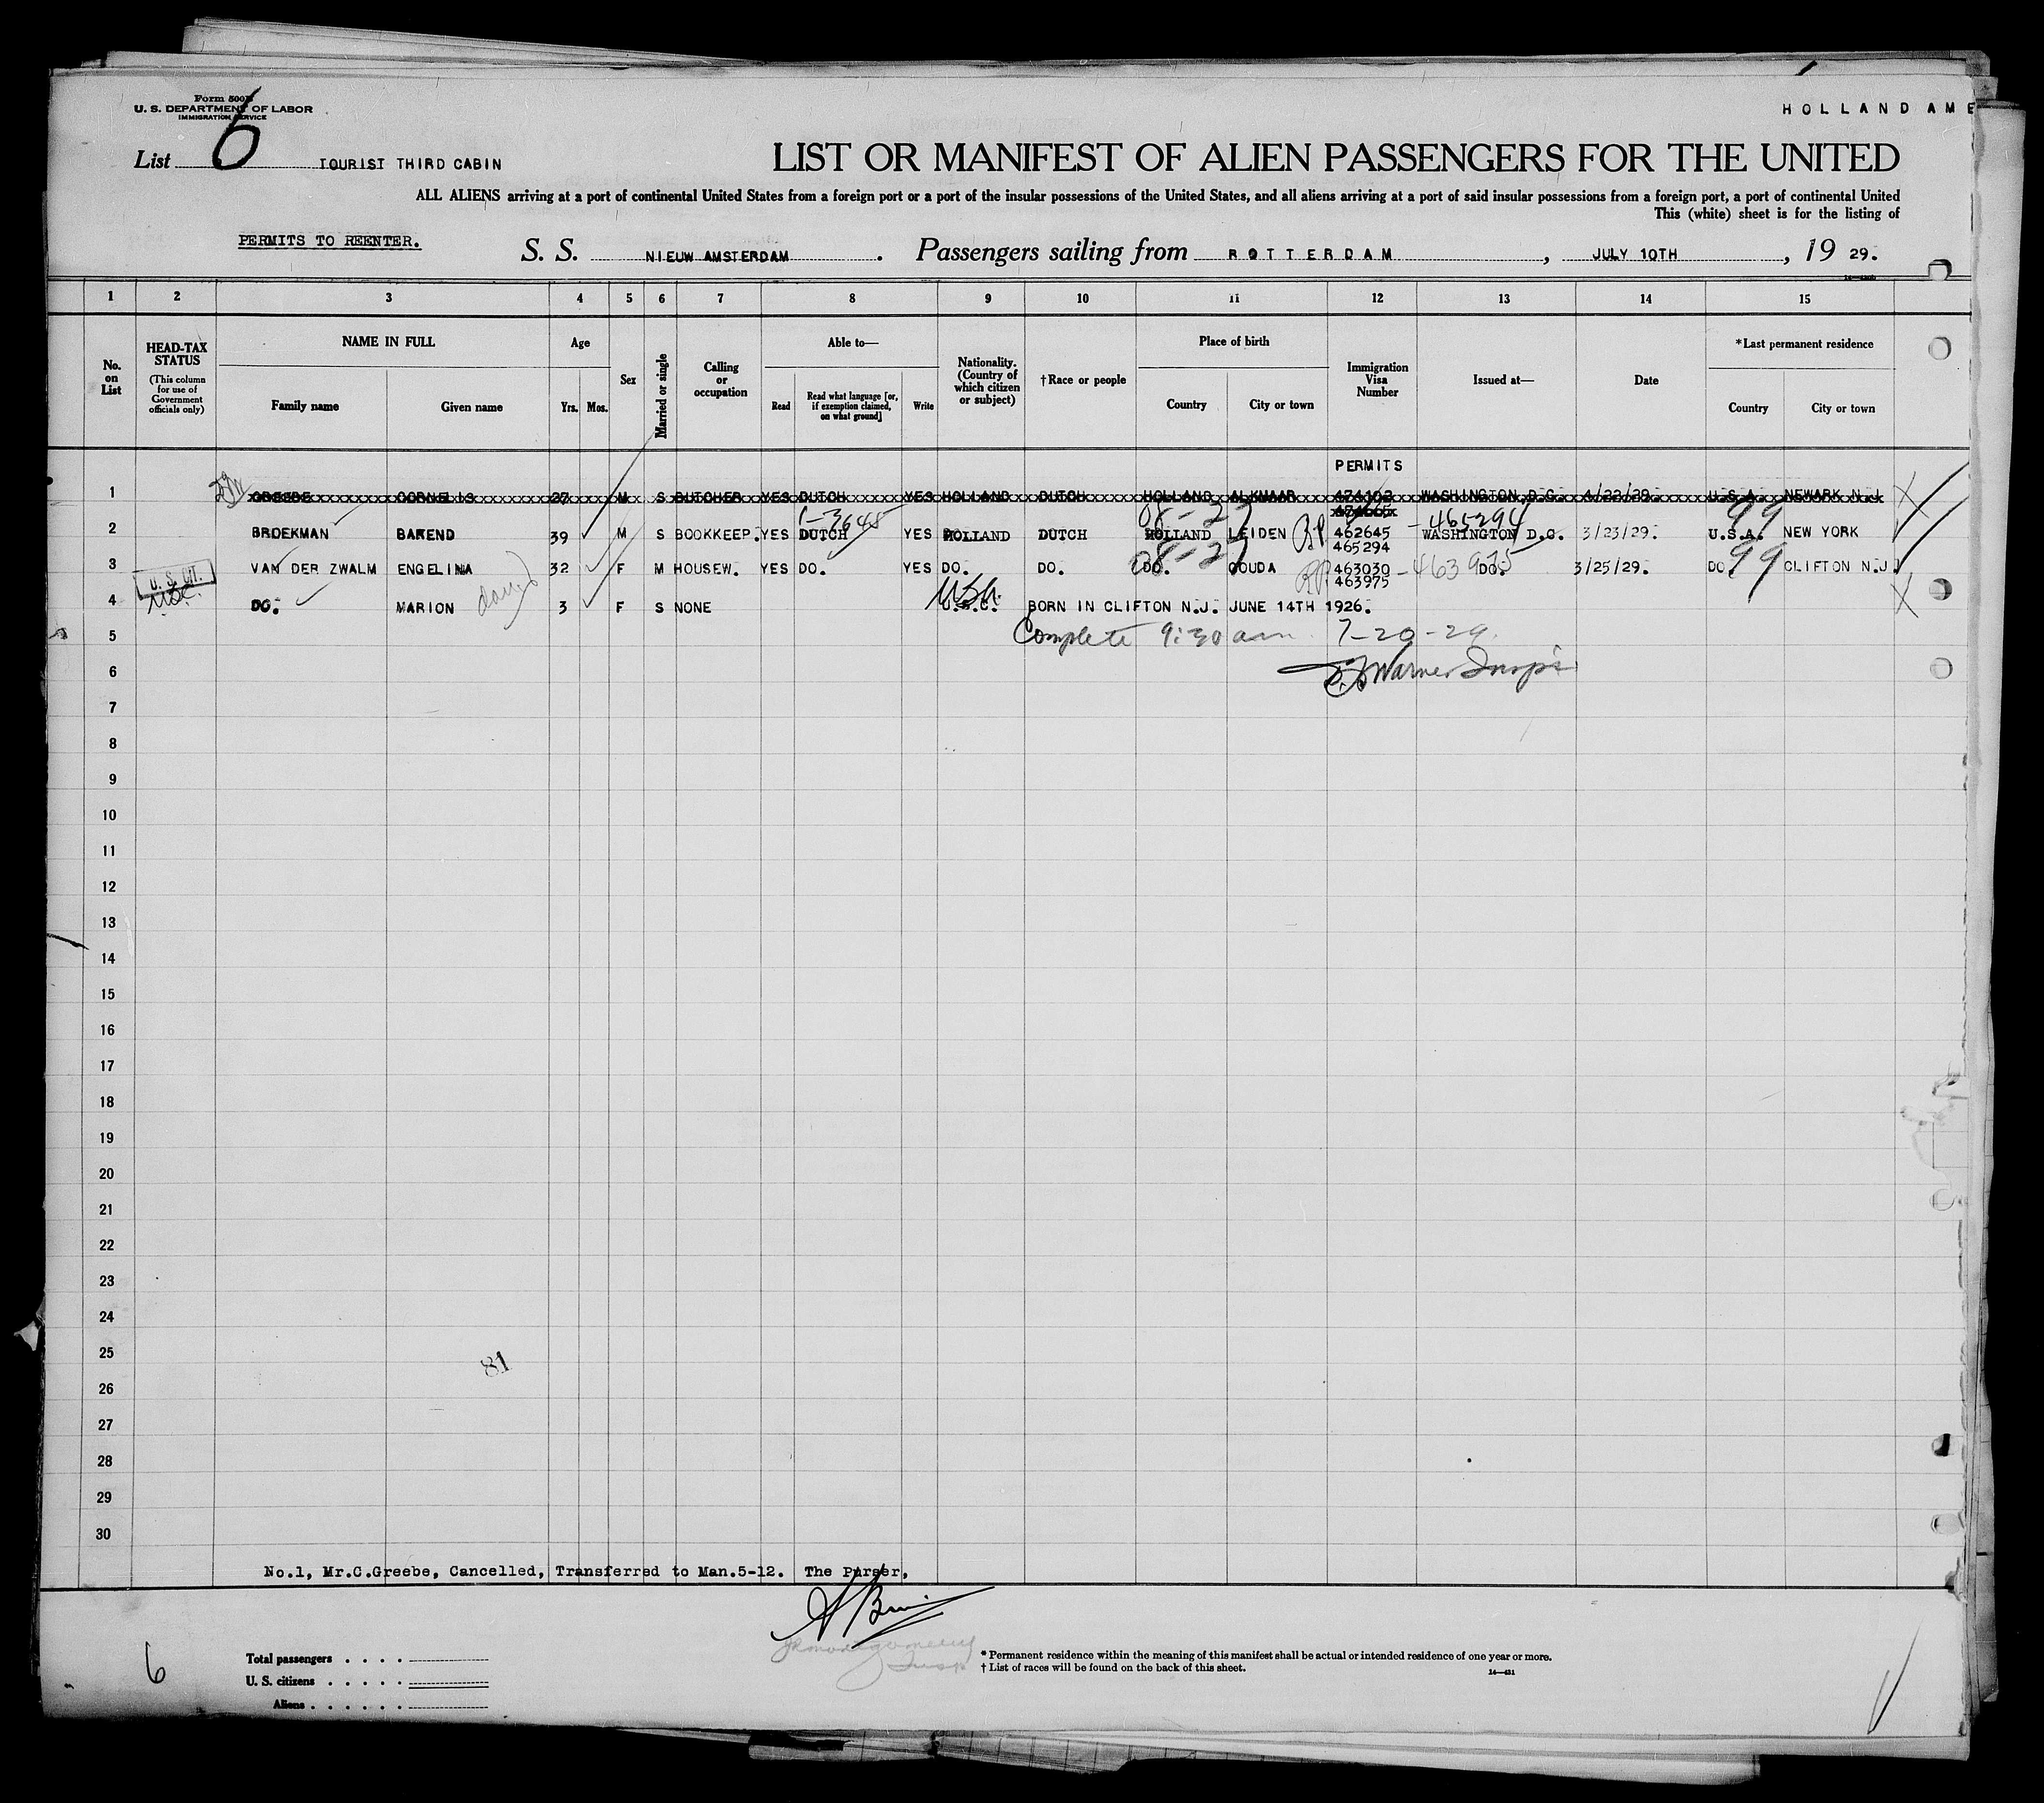 Form 500
U. S. DEPARTMENT OF LABOR
IMMIGRATION SERVICE
HOLLAND AME
List 6 TOURIST THIRD CABIN
LIST OR MANIFEST OF ALIEN PASSENGERS FOR THE UNITED
ALL ALIENS arriving at a port of continental United States from a foreign port or a port of the insular possessions of the United States, and all aliens arriving at a port of said insular possessions from a foreign port, a port of continental United
This (white) sheet is for the listing of
PERMITS TO REENTER.
S. S. NIEUW AMSTERDAM . Passengers sailing from ROTTERDAM , JULY 10TH , 19 29.
1 2 3 4 5 6 7 8 9 10 11 12 13 14 15
No. on List
HEAD-TAX STATUS
(This column for use of Government officials only)
NAME IN FULL
Family name Given name
Age
Yrs. Mos.
Sex
Married or single
Calling or occupation
Able to—
Read
Read what language [or, if exemption claimed, on what ground]
Write
Nationality. (Country of which citizen or subject)
†Race or people
Place of birth
Country City or town
Immigration Visa Number
Issued at—
Date
*Last permanent residence
Country City or town
PERMITS
1 GREEBE CORNELIS 27 M S BUTCHER YES DUTCH YES HOLLAND DUTCH HOLLAND ALKMAAR 474102 WASHINGTON,D.C. 4/22/29. U.S.A. NEWARK N.J
1-3645 08-27 465294 99
2 BROEKMAN BAREND 39 M S BOOKKEEP. YES DUTCH YES HOLLAND DUTCH HOLLAND LEIDEN RP 462645 WASHINGTON D.C. 3/23/29. U.S.A. NEW YORK
465294
08-27 463975 99
3 VAN DER ZWALM ENGELINA 32 F M HOUSEW. YES DO. YES DO. DO. DO. GOUDA RP 463030 DO. 3/25/29. DO CLIFTON N.J.
463975
U. S. CIT.
USC
USA
4 DO. MARION 3 F S NONE U.S.C. BORN IN CLIFTON N.J. JUNE 14TH 1926.
5 Complete 9:30 am. 7-20-29.
6 Warner Insp
7
8
9
10
11
12
13
14
15
16
17
18
19
20
21
22
23
24
25
81
26
27
28
29
30
No.1, Mr.C.Greebe, Cancelled, Transferred to Man.5-12. The Purser,
6
Total passengers . . . .
U. S. citizens . . . . .
Aliens . . . . . .
* Permanent residence within the meaning of this manifest shall be actual or intended residence of one year or more.
† List of races will be found on the back of this sheet.
14—431